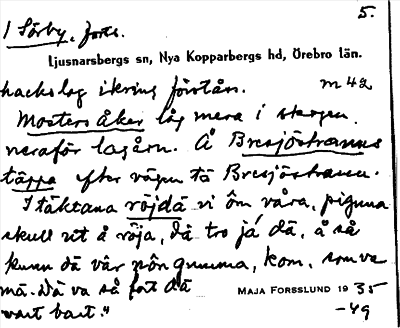 5.
I Sörby, forts.
Ljusnarsbergs sn, Nya Kopparbergs hd, Örebro län.
hackslog ikring förstån. m 42
Mosters åker låg mera i skogen
neraför lagårn. Å Bresjöstranns
täppa efter vägen tä Bresjöstranen.
I täktana röjdä vi ôm våra, piguna
skull ut å röja, dä tro ja' dä, å så
kunn dä vâr nôn gumma, kom, som va
mä. Dä va så fôt dä
MAJA FORSSLUND 1935
vart bart."
-49